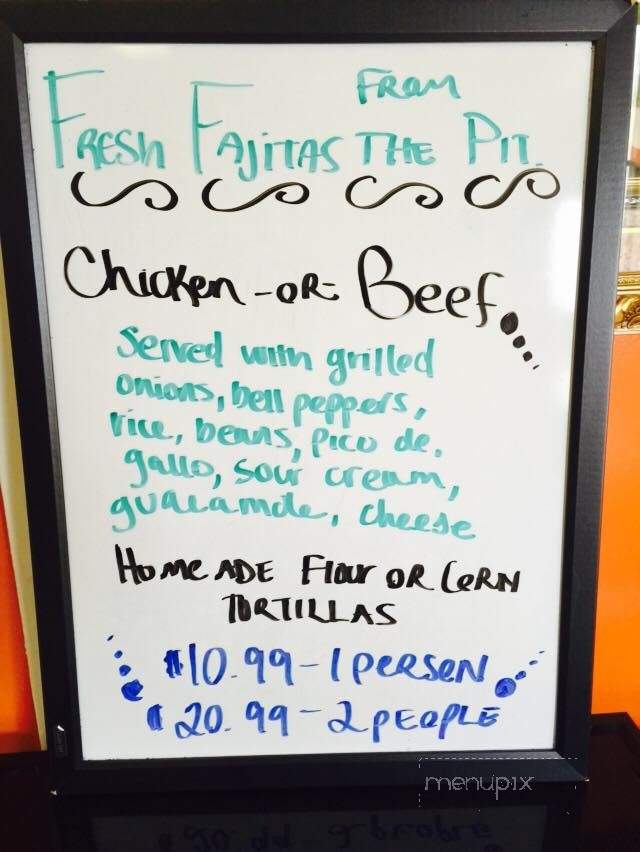 FROM
FRESH FAJITAS THE PIT.
Chicken -OR- Beef...
Served with grilled
onions, bell peppers,
rice, beans, pico de.
gallo, sour cream,
guacamole, cheese
HOMEMADE Flour OR CORN
TORTILLAS
$10.99-1 PERSON
$20.99-2 PEOPLE
menupix